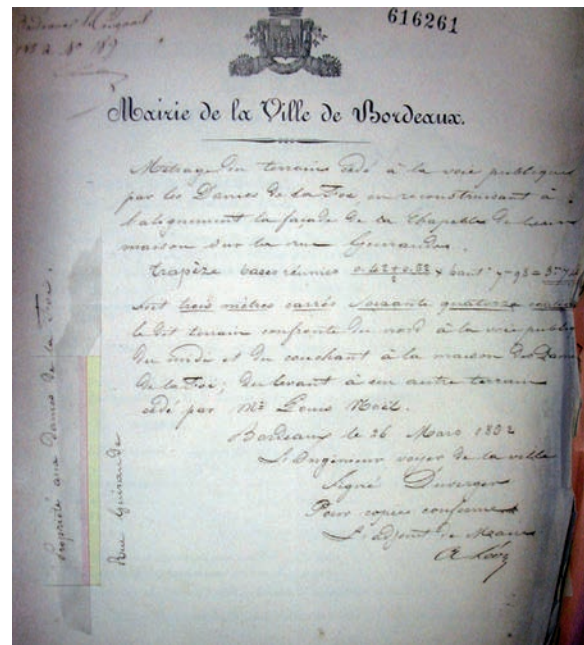 616261
Nº 189
Mairie de la Ville de Bordeaux.
Métrage du terrain cédé à la voie publique
par les Dames de la Foi, en reconstruisant à
l'alignement la façade de la Chapelle de leur
maison sur la rue Guiraude.
Trapèze bases réunies 0.42+0.52 / 2 x haut^r 7=98 = 3^m 74
Soit trois mètres carrés soixante quatorze
le dit terrain confronte du nord à la voie publique
du midi et du couchant à la maison des Dames
de la Foi; du levant à un autre terrain
cédé par Mr Louis Noël.
Bordeaux le 26 Mars 1802
L'Ingénieur voyer de la ville
Signé Duverger
Pour copie conforme
L'adjoint de Maire
Propriété aux Dames de la Foi.
Rue Guiraude